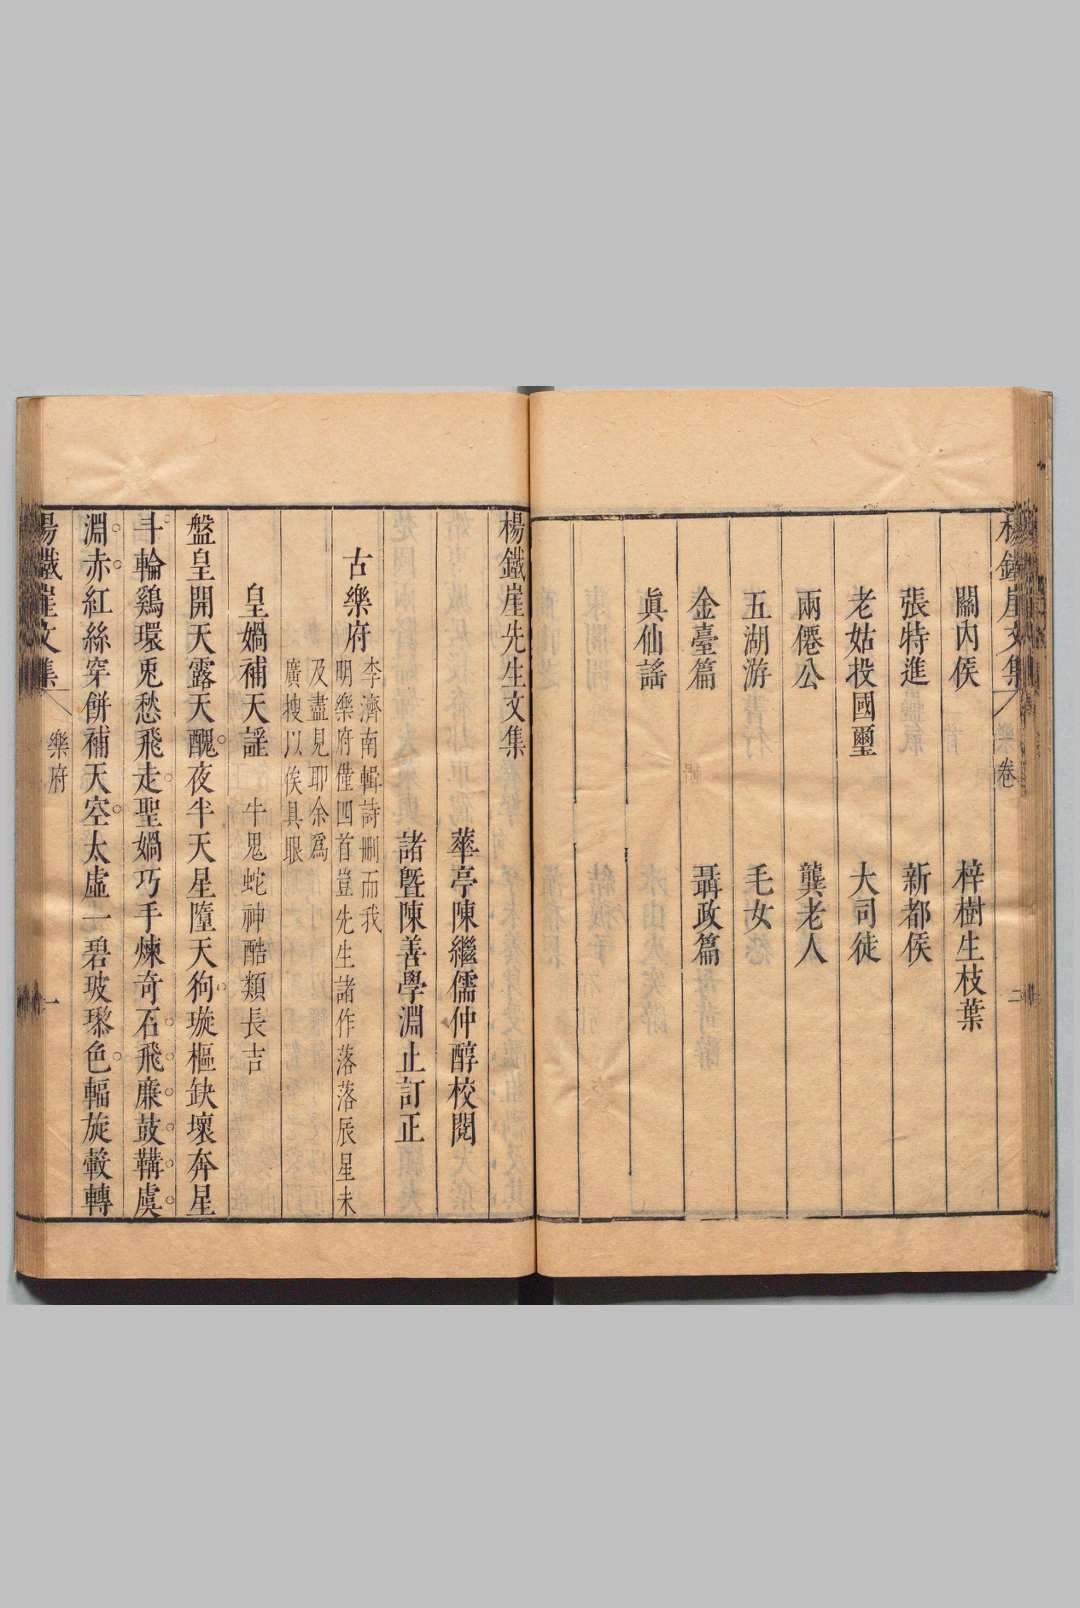 楊鐵崖文集 樂卷 二
關內侯 梓樹生枝葉
張特進 新都侯
老姑投國璽 大司徒
兩僊公 龔老人
五湖游 毛女
金臺篇 聶政篇
眞仙謡
楊鐵崖先生文集
華亭陳繼儒仲醇校閱
諸暨陳善學淵止訂正
古樂府
李濟南輯詩刪而我
明樂府僅四首豈先生諸作落落辰星未
及盡見耶余爲
廣搜以俟具眼
皇媧補天謡 牛鬼蛇神酷類長吉
盤皇開天露天醜夜半天星墮天狗璇樞缺壞奔星
斗輪鷄環兎愁飛走聖媧巧手煉奇石飛廉鼓鞲虞
淵赤紅絲穿餅補天空太虛一碧玻瓈色輻旋轂轉
楊鐵崖文集 樂府 一